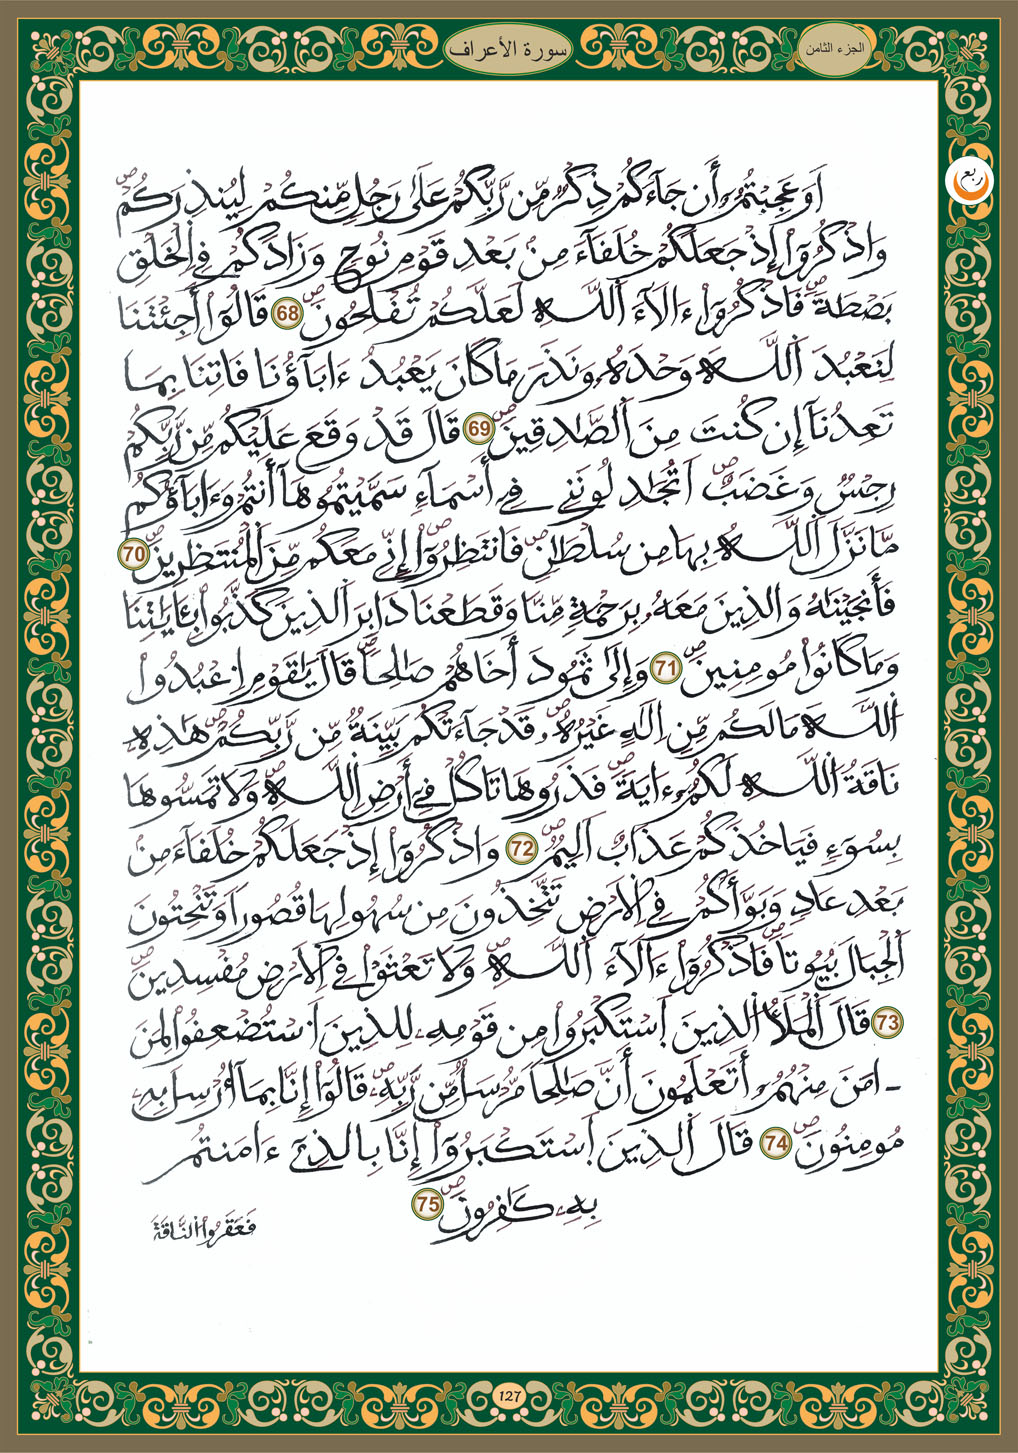 سورة الأعراف
الجزء الثامن
ربع
اَوَعَجِبْتُمُۥٓ أَن جَآءَكُمْ ذِكْرٌ مِّن رَّبِّكُمْ عَلَىٰ رَجُلٍ مِّنكُمْ لِيُنذِرَكُمْ صٓ
وَاذْكُرُوٓاْ إِذْ جَعَلَكُمْ خُلَفَآءَ مِنۢ بَعْدِ قَوْمِ نُوحٍ وَزَادَكُمْ فِے اِ۬لْخَلْقِ
بَصْۜطَةً صٓ فَاذْكُرُوٓاْ ءَالَآءَ اَ۬للَّهِ لَعَلَّكُمْ تُفْلِحُونَ صٓ 68 قَالُوٓاْ أَجِئْتَنَا
لِنَعْبُدَ اَ۬للَّهَ وَحْدَهُۥ وَنَذَرَ مَا كَانَ يَعْبُدُ ءَابَآؤُنَا فَاتِنَا بِمَا
تَعِدُنَآ إِن كُنتَ مِنَ اَ۬لصَّٰدِقِينَ صٓ 69 قَالَ قَدْ وَقَعَ عَلَيْكُم مِّن رَّبِّكُمْ
رِجْسٌ وَغَضَبٌ صٓ اَتُجَٰدِلُونَنِے فِےٓ أَسْمَآءٍ سَمَّيْتُمُوهَآ أَنتُمْ وَءَابَآؤُكُم
مَّا نَزَّلَ اَ۬للَّهُ بِهَا مِن سُلْطَٰنٍ صٓ فَانتَظِرُوٓاْ إِنِّے مَعَكُم مِّنَ اَ۬لْمُنتَظِرِينَ صٓ 70
فَأَنجَيْنَٰهُ وَالذِينَ مَعَهُۥ بِرَحْمَةٍ مِّنَّا وَقَطَعْنَا دَابِرَ اَ۬لذِينَ كَذَّبُواْ بِـَٔايَٰتِنَا
وَمَا كَانُواْ مُومِنِينَ صٓ 71 وَإِلَىٰ ثَمُودَ أَخَاهُمْ صَٰلِحاً صٓ قَالَ يَٰقَوْمِ اِ۟عْبُدُواْ
اُ۬للَّهَ مَا لَكُم مِّنِ اِلَٰهٍ غَيْرُهُۥ صٓ قَدْ جَآءَتْكُم بَيِّنَةٌ مِّن رَّبِّكُمْ صٓ هَٰذِهِۦ
نَاقَةُ اُ۬للَّهِ لَكُمُۥٓ ءَايَةً صٓ فَذَرُوهَا تَاكُلْ فِےٓ أَرْضِ اِ۬للَّهِ صٓ وَلَا تَمَسُّوهَا
بِسُوٓءٍ فَيَاخُذَكُمْ عَذَابٌ اَلِيمٌ صٓ 72 وَاذْكُرُوٓاْ إِذْ جَعَلَكُمْ خُلَفَآءَ مِنۢ
بَعْدِ عَادٍ وَبَوَّأَكُمْ فِے اِ۬لَارْضِ تَتَّخِذُونَ مِن سُهُولِهَا قُصُوراً وَتَنْحِتُونَ
اَ۬لْجِبَالَ بُيُوتاً صٓ فَاذْكُرُوٓاْ ءَالَآءَ اَ۬للَّهِ صٓ وَلَا تَعْثَوْاْ فِے اِ۬لَارْضِ مُفْسِدِينَ صٓ
73 قَالَ اَ۬لْمَلَأُ اُ۬لذِينَ اَ۪سْتَكْبَرُواْ مِن قَوْمِهِۦ لِلذِينَ اَ۟سْتُضْعِفُواْ لِمَنَ
ـ امَنَ مِنْهُمُۥٓ أَتَعْلَمُونَ أَنَّ صَٰلِحاً مُّرْسَلٌ مِّن رَّبِّهِۦ صٓ قَالُوٓاْ إِنَّا بِمَآ أُرْسِلَ بِهِۦ
مُومِنُونَ صٓ 74 قَالَ اَ۬لذِينَ اَ۪سْتَكْبَرُوٓاْ إِنَّا بِالذِےٓ ءَامَنتُم
بِهِۦ كَٰفِرُونَ صٓ 75
فَعَقَرُواْ اُ۬لنَّاقَةَ
127